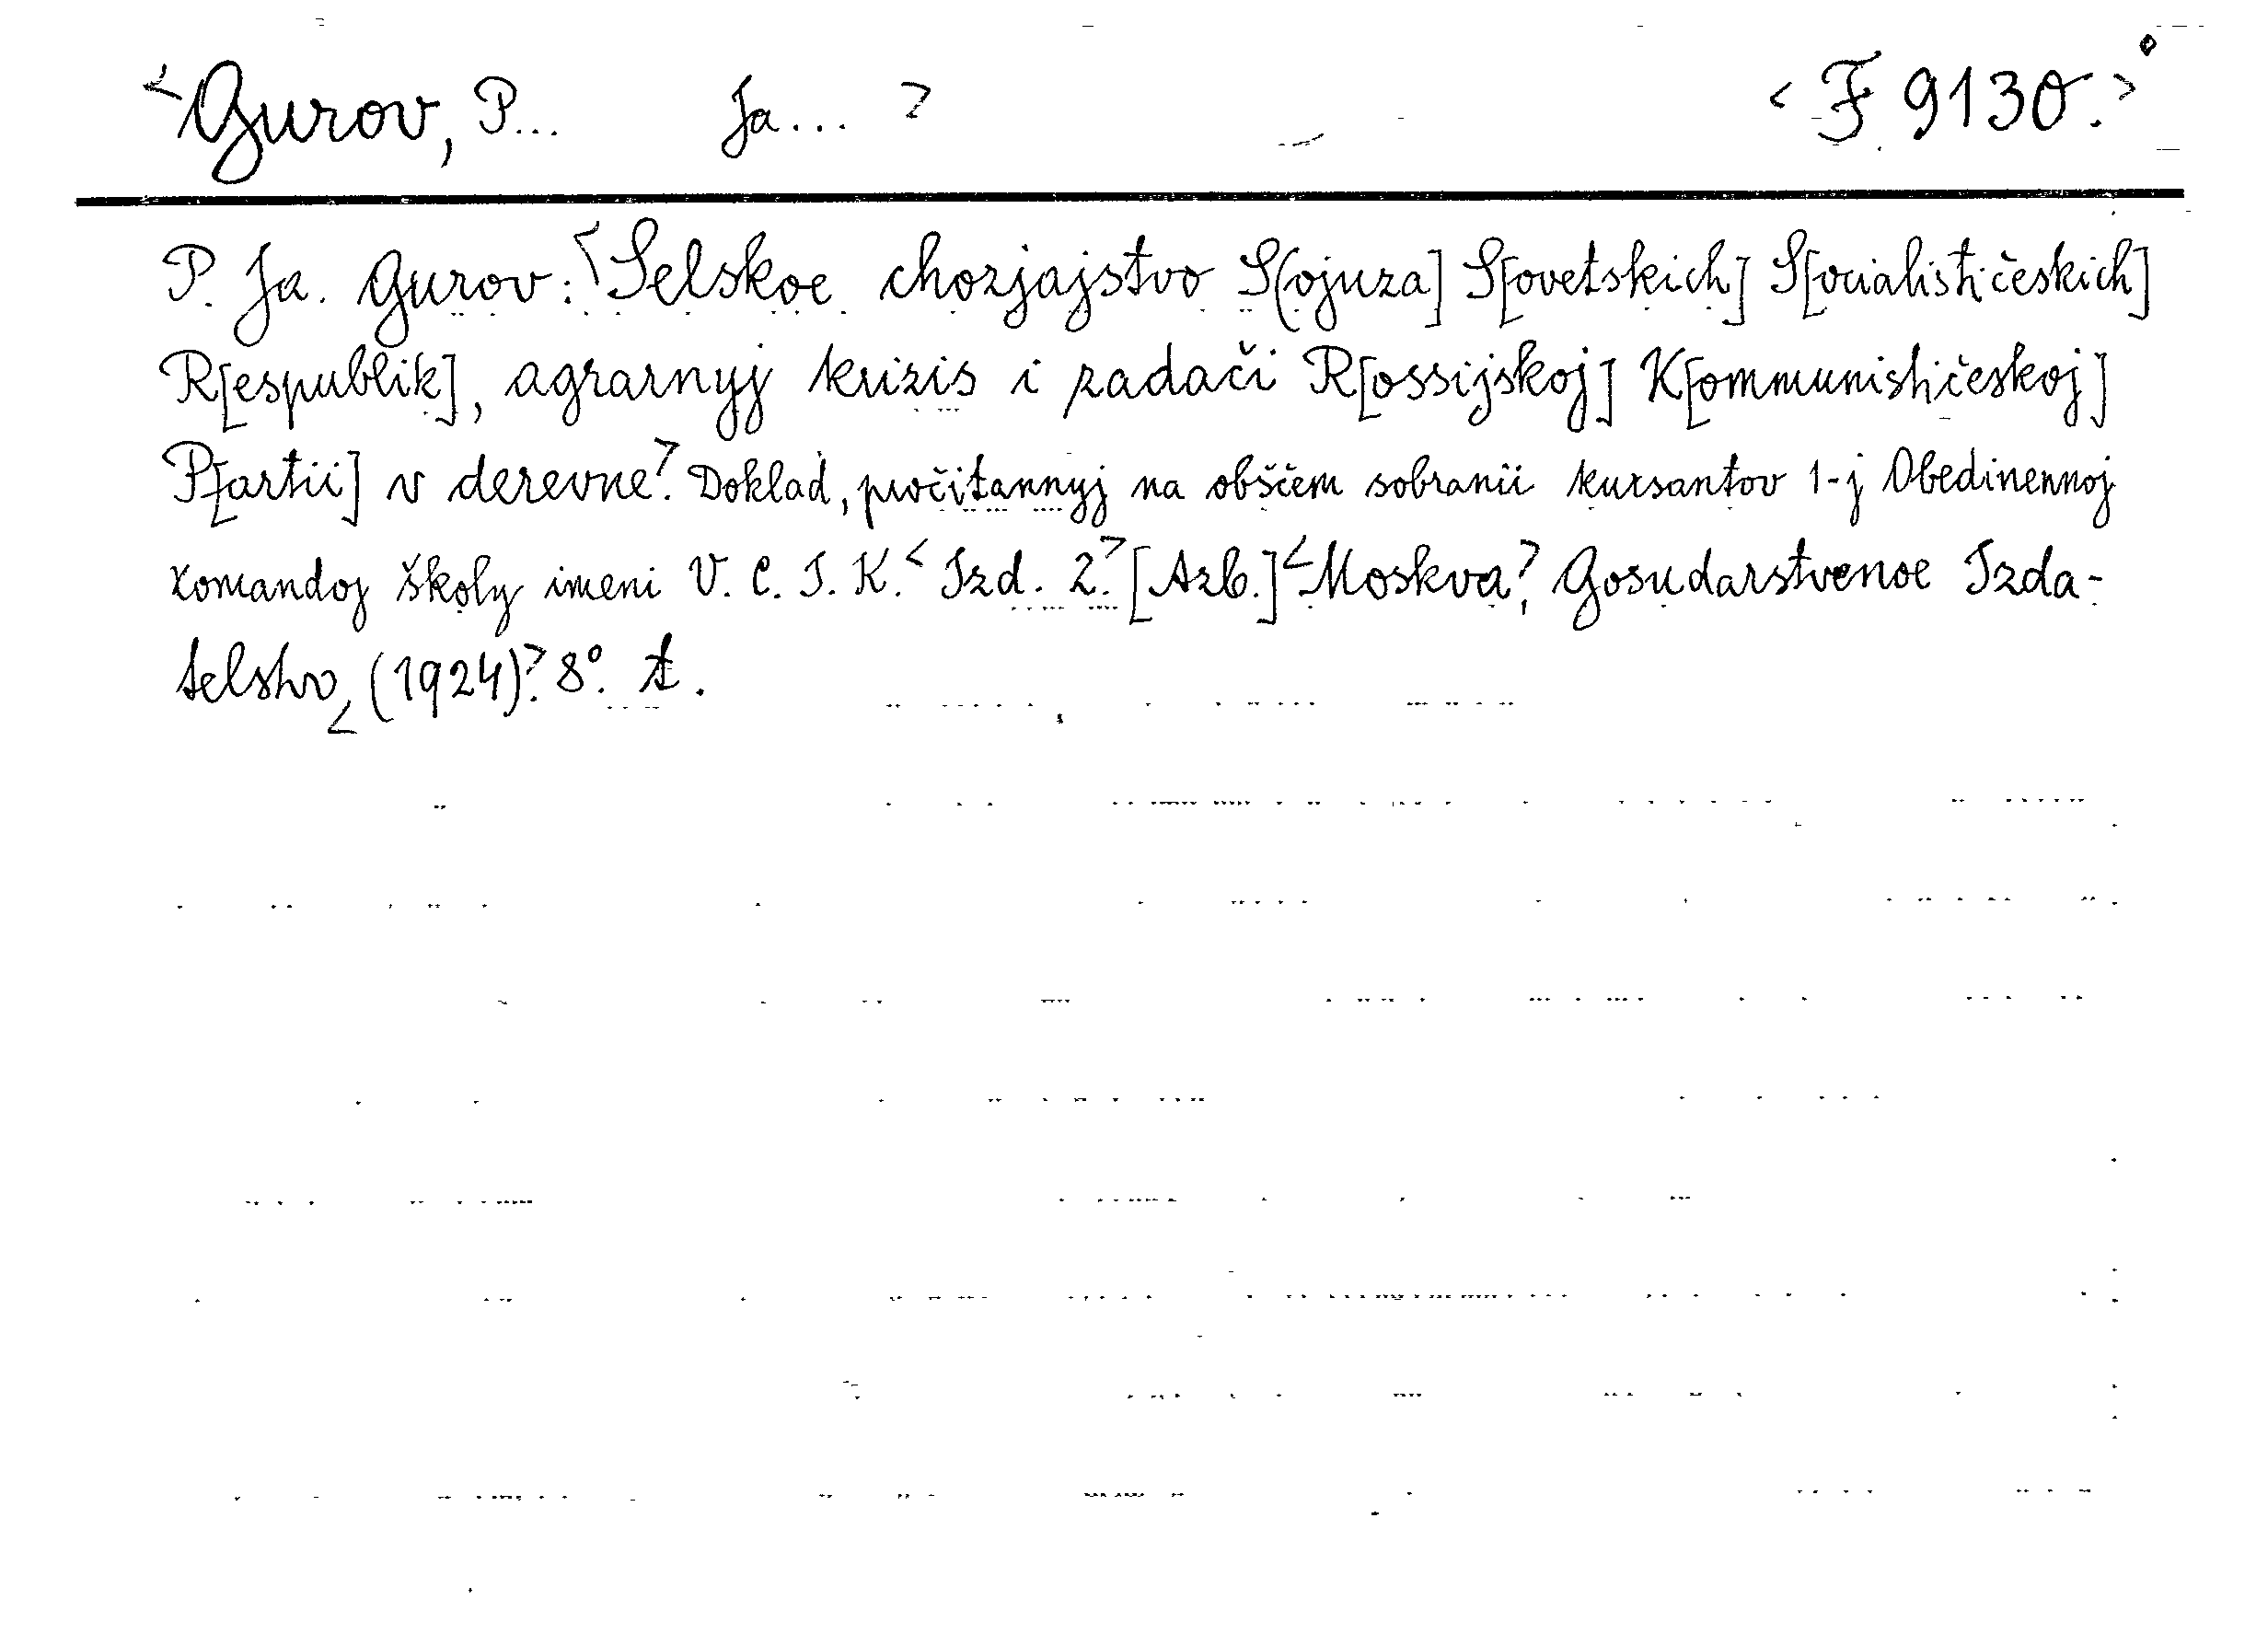 <Gurov, P... Ja... > <F 9130.>
P. Ja. Gurov: <Selskoe chozjajstvo S[ojuza] S[ovetskich] S[ocialističeskich]
R[espublik], agrarnyj krizis i zadači R[ossijskoj] K[ommunističeskoj]
P[artii] v derevne>. Doklad, pročitannyj na obščem sobranii kursantov 1-j Obedinennoj
komandoj školy imeni V. C. I. K. <Izd. 2.> [Azb.] <Moskva>, Gosudarstvenoe Izda-
telstvo <(1924)>. 8°.